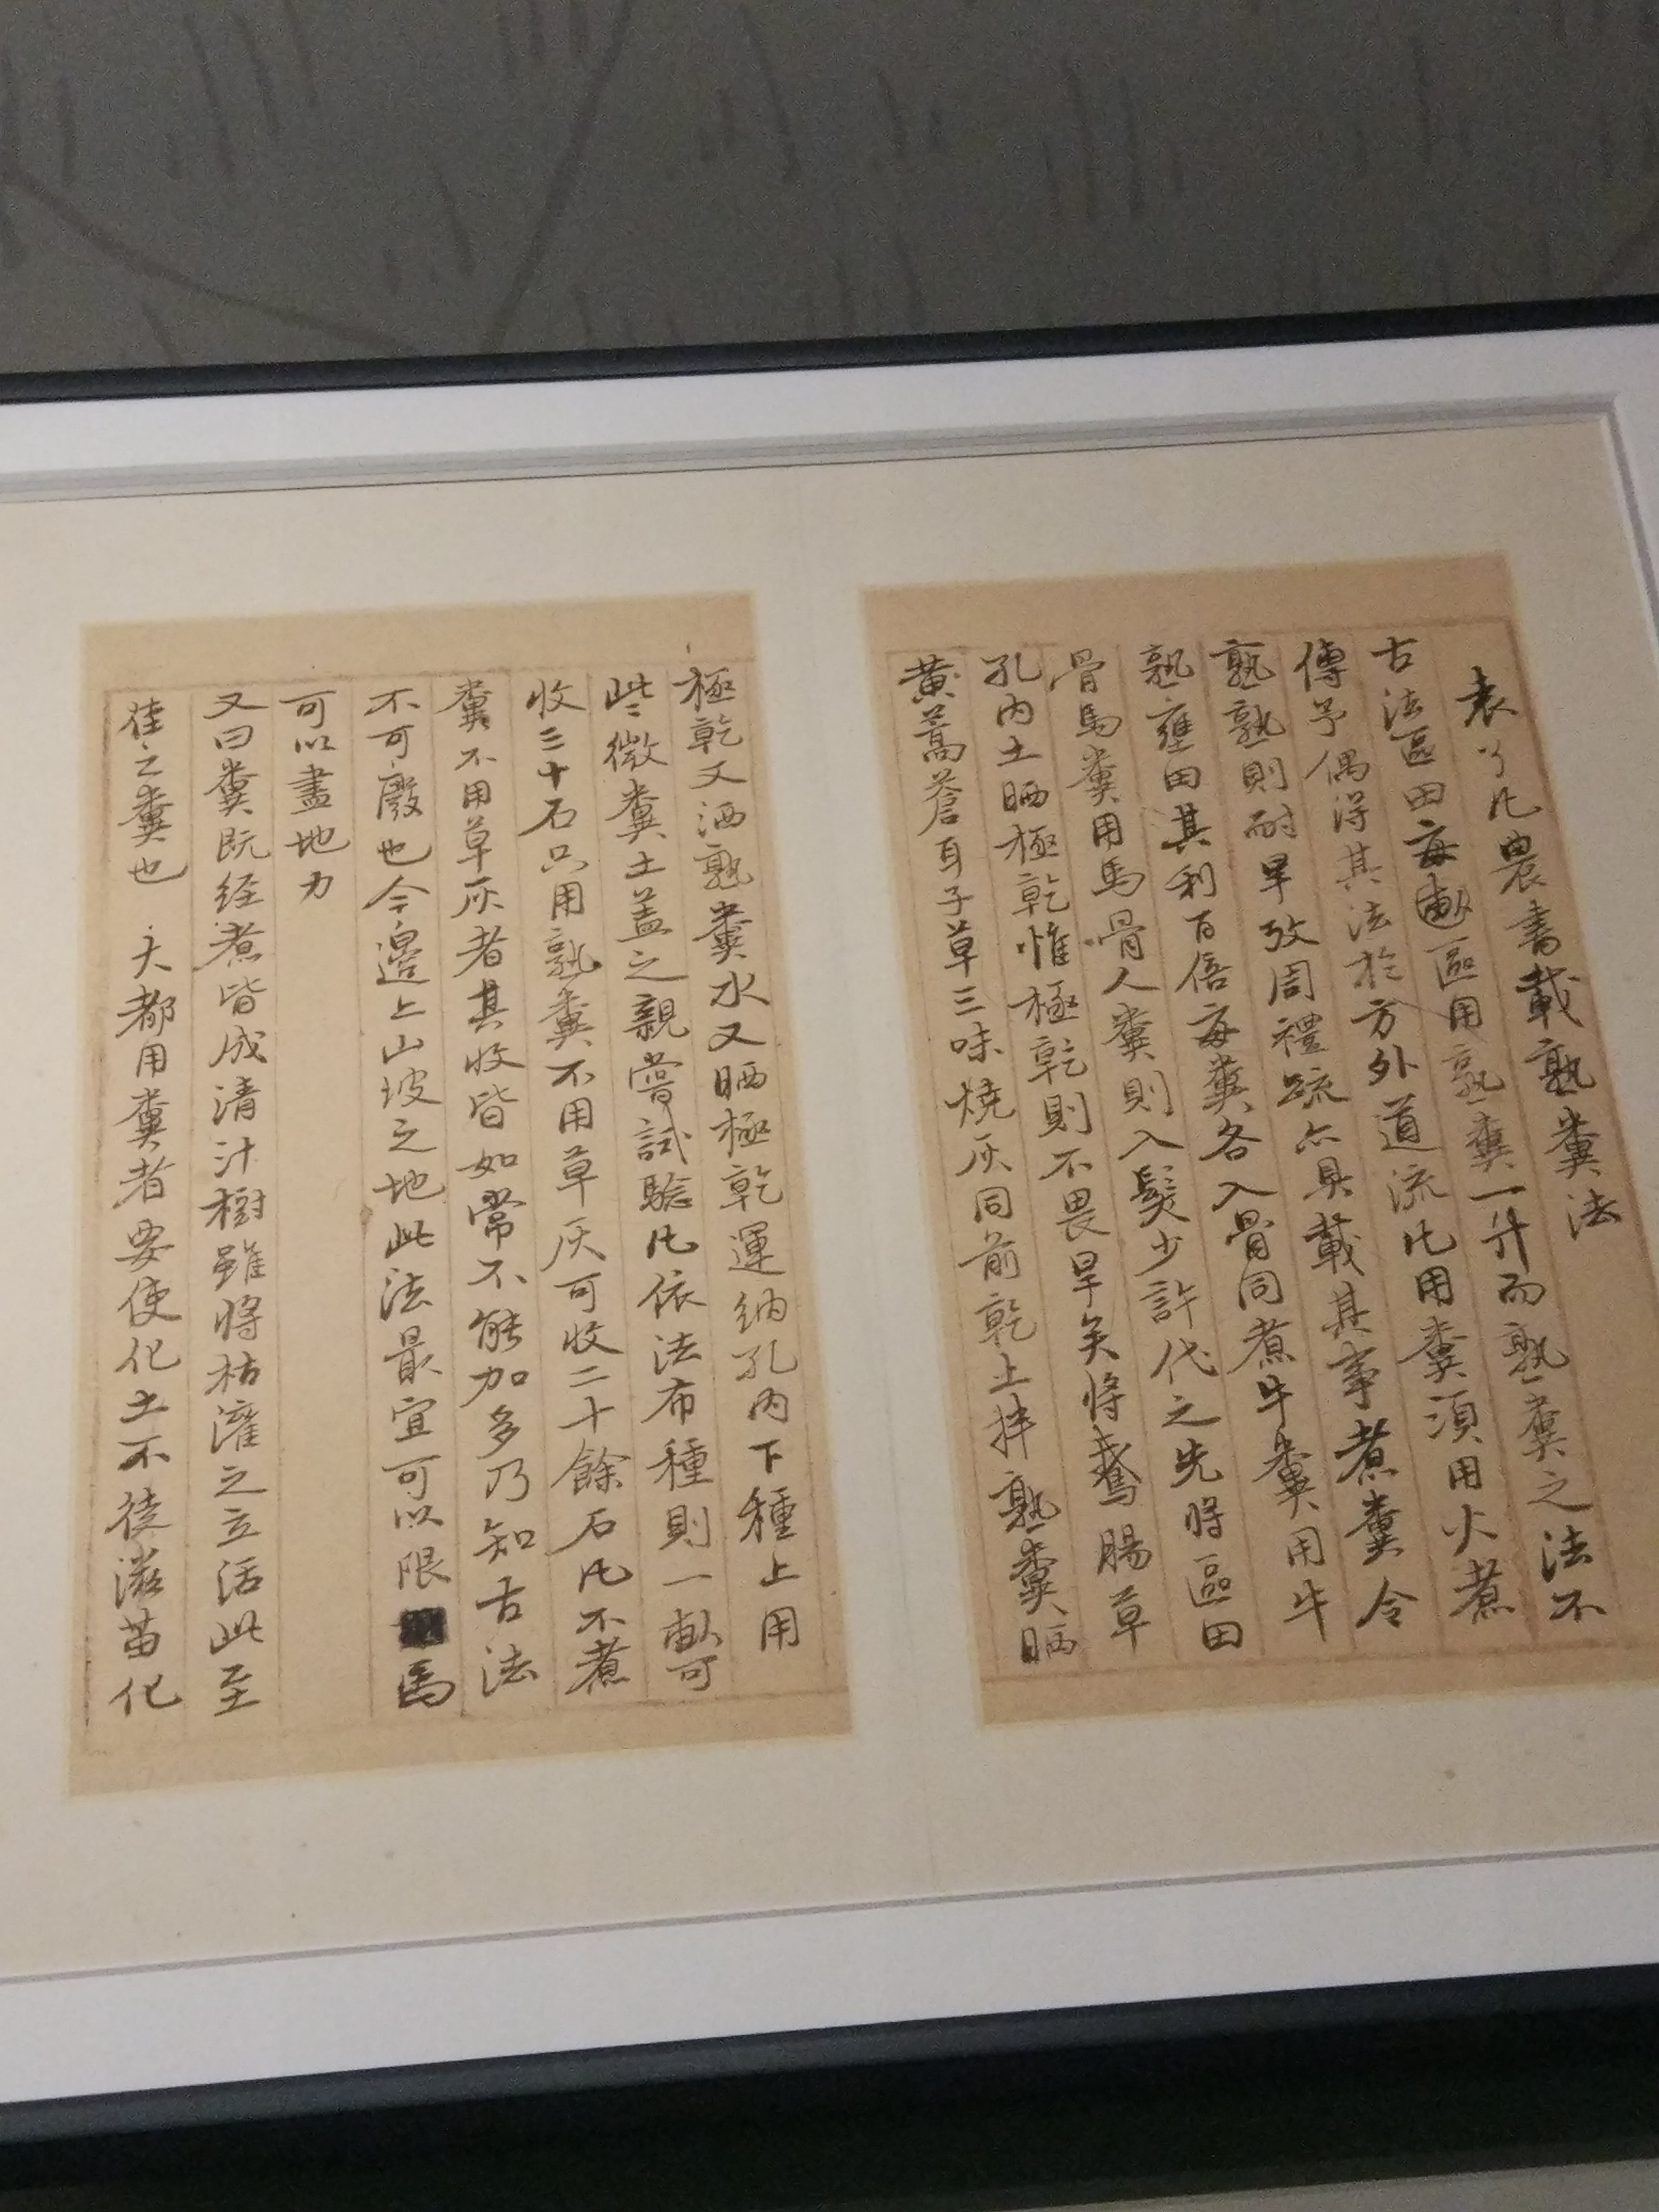 袁了凡農書載熟糞法
古法區田每畝區用熟糞一升而熟糞之法不
傳予偶得其法於方外道流凡用糞須用火煮
熟熟則耐旱攷周禮疏亦具載其事煮糞令
熟壅田其利百倍每糞各入骨同煮牛糞用牛
骨馬糞用馬骨人糞則入髮少許代之先將區田
孔內土晒極乾惟極乾則不畏旱矣將鵞腸草
黃蒿蒼耳子草三味燒灰同前乾土拌熟糞晒
極乾又洒熟糞水又晒極乾運納孔內下種上用
些微糞土盖之親嘗試驗凡依法布種則一畝可
收三十石只用熟糞不用草灰可收二十餘石凡不煮
糞不用草灰者其收皆如常不能加多乃知古法
不可廢也今邊上山坡之地此法最宜可以限馬
可以盡地力
又曰糞既经煮皆成清汁樹雖將枯灌之立活此至
佳之糞也 大都用糞者要使化土不徒滋苗化